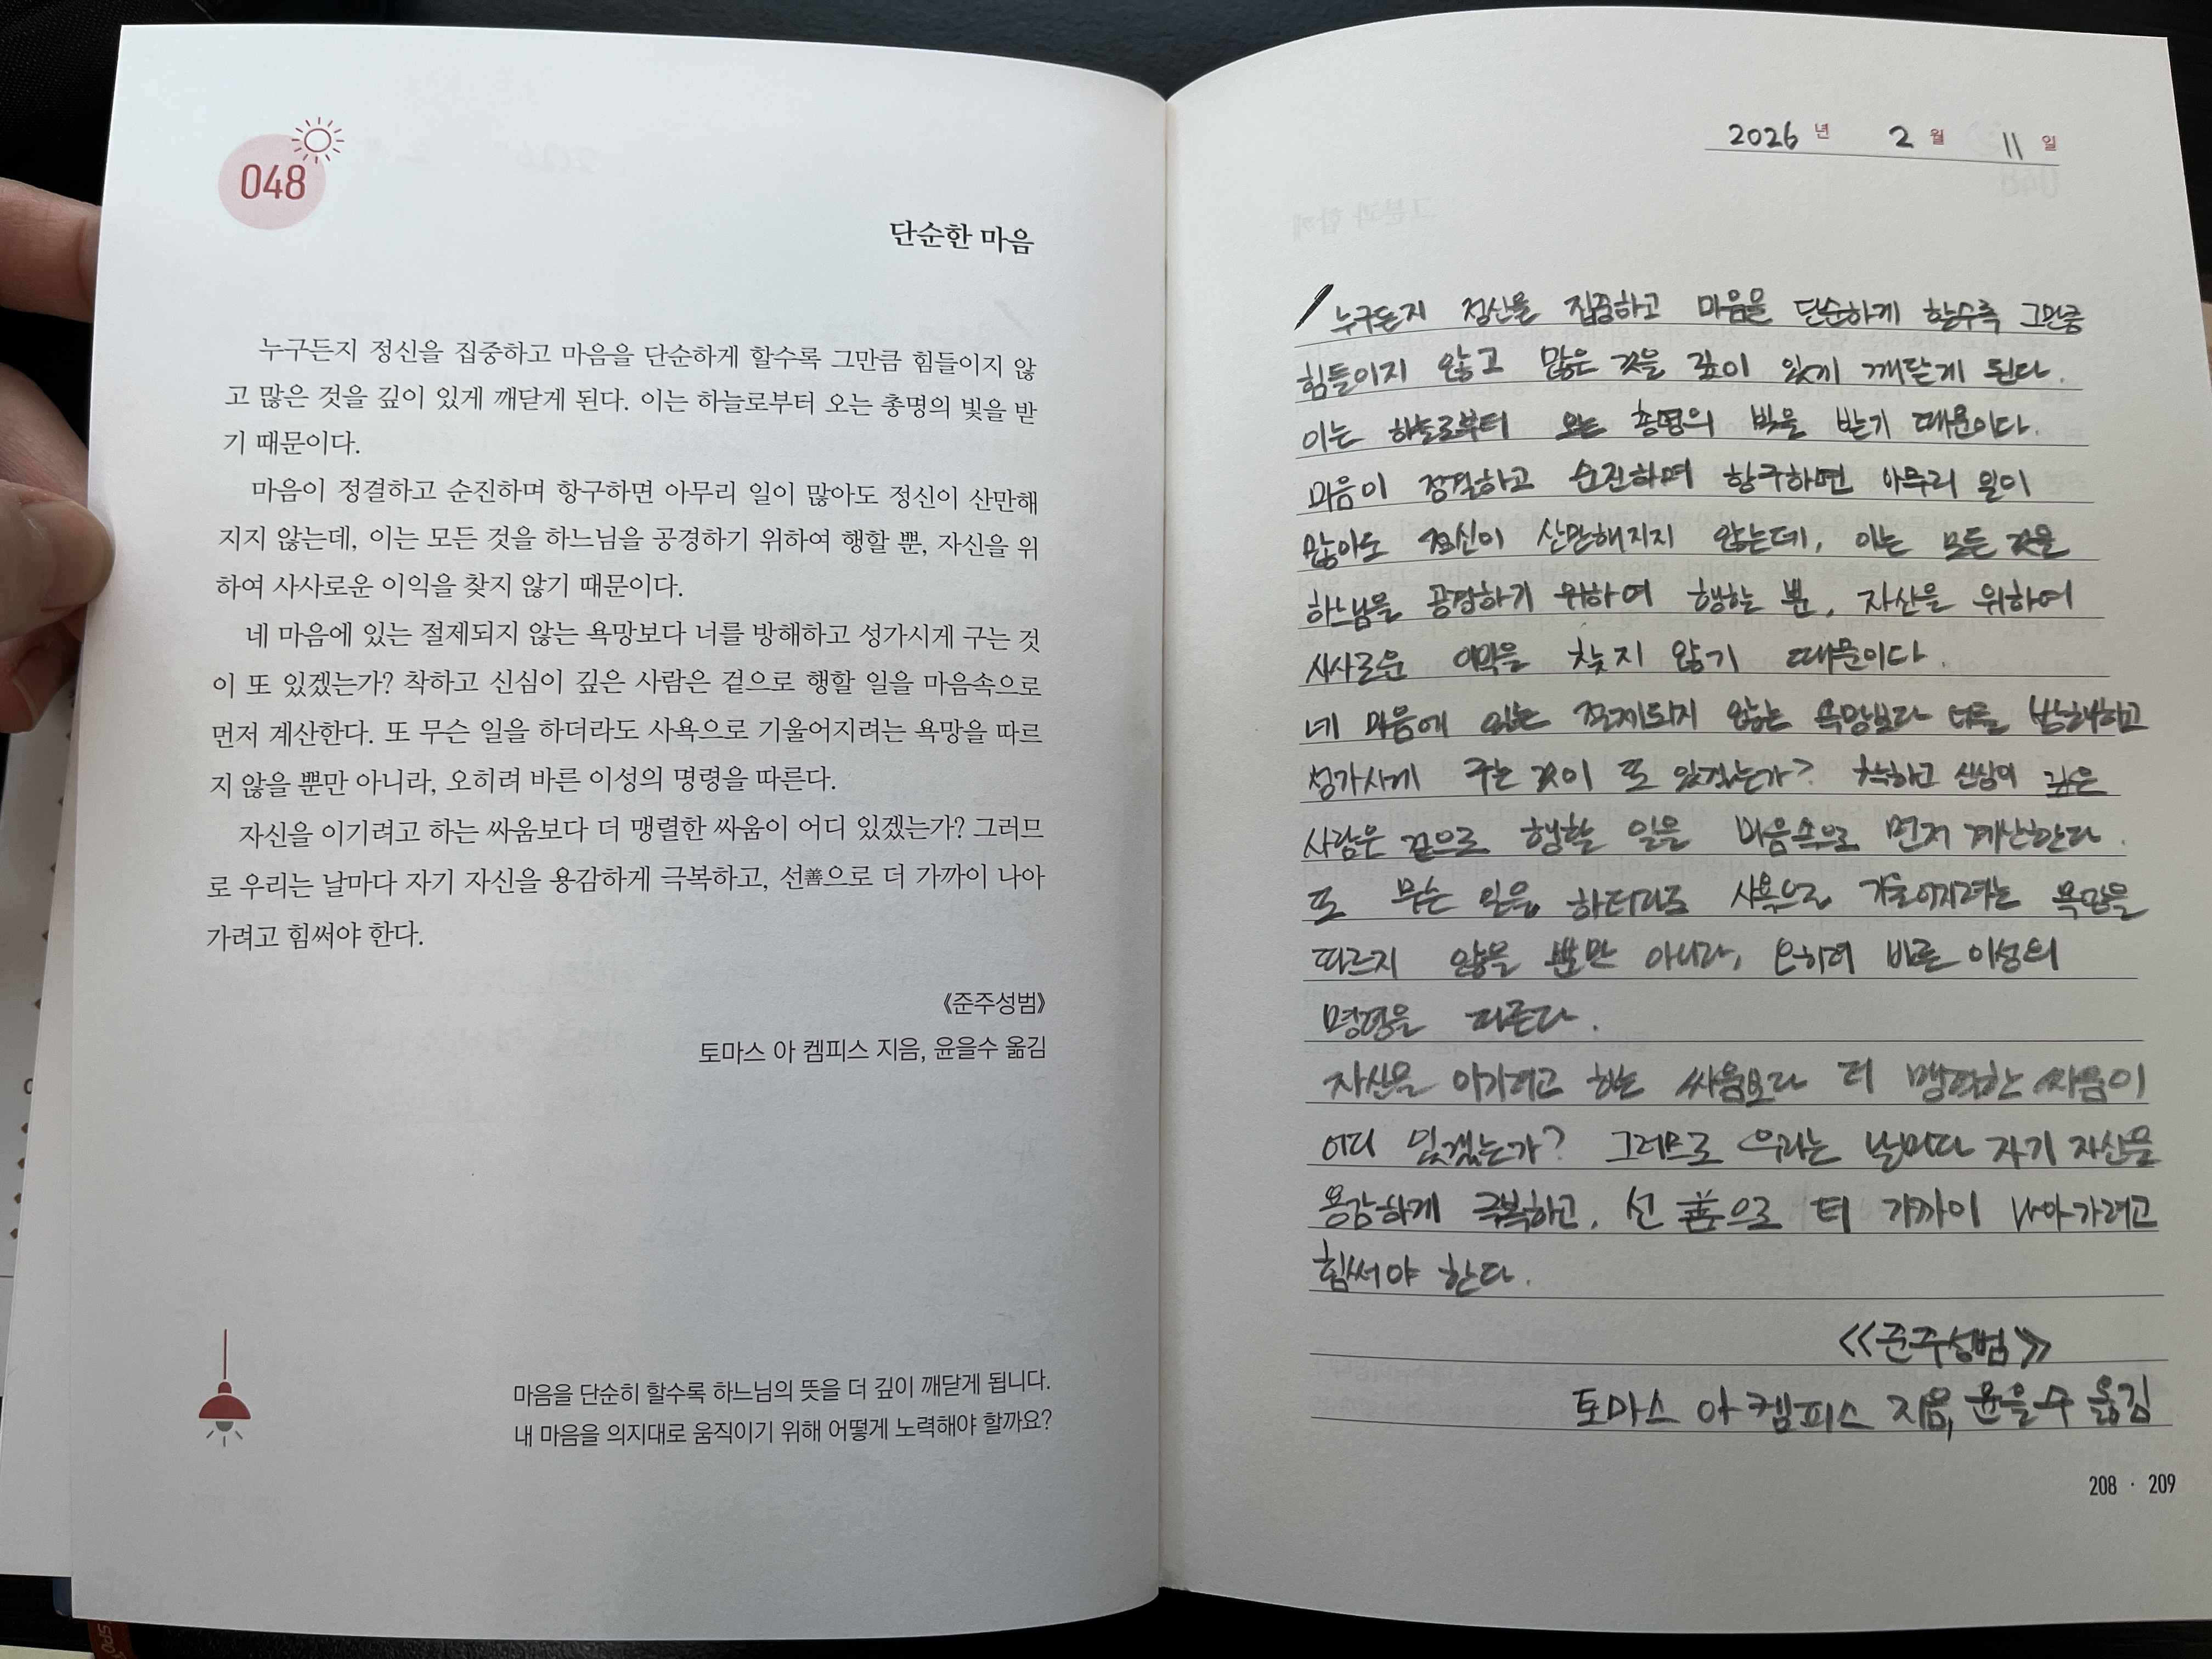 048
단순한 마음
누구든지 정신을 집중하고 마음을 단순하게 할수록 그만큼 힘들이지 않
고 많은 것을 깊이 있게 깨닫게 된다. 이는 하늘로부터 오는 총명의 빛을 받
기 때문이다.
마음이 정결하고 순진하며 항구하면 아무리 일이 많아도 정신이 산만해
지지 않는데, 이는 모든 것을 하느님을 공경하기 위하여 행할 뿐, 자신을 위
하여 사사로운 이익을 찾지 않기 때문이다.
네 마음에 있는 절제되지 않는 욕망보다 너를 방해하고 성가시게 구는 것
이 또 있겠는가? 착하고 신심이 깊은 사람은 겉으로 행할 일을 마음속으로
먼저 계산한다. 또 무슨 일을 하더라도 사욕으로 기울어지려는 욕망을 따르
지 않을 뿐만 아니라, 오히려 바른 이성의 명령을 따른다.
자신을 이기려고 하는 싸움보다 더 맹렬한 싸움이 어디 있겠는가? 그러므
로 우리는 날마다 자기 자신을 용감하게 극복하고, 선善으로 더 가까이 나아
가려고 힘써야 한다.
《준주성범》
토마스 아 켐피스 지음, 윤을수 옮김
마음을 단순히 할수록 하느님의 뜻을 더 깊이 깨닫게 됩니다.
내 마음을 의지대로 움직이기 위해 어떻게 노력해야 할까요?
2026 년 2 월 11 일
누구든지 정신을 집중하고 마음을 단순하게 할수록 그만큼
힘들이지 않고 많은 것을 깊이 있게 깨닫게 된다.
이는 하늘로부터 오는 총명의 빛을 받기 때문이다.
마음이 정결하고 순진하며 항구하면 아무리 일이
많아도 정신이 산만해지지 않는데, 이는 모든 것을
하느님을 공경하기 위하여 행할 뿐, 자신을 위하여
사사로운 이익을 찾지 않기 때문이다.
네 마음에 있는 절제되지 않는 욕망보다 너를 방해하고
성가시게 구는 것이 또 있겠는가? 착하고 신심이 깊은
사람은 겉으로 행할 일을 마음속으로 먼저 계산한다.
또 무슨 일을 하더라도 사욕으로 기울어지려는 욕망을
따르지 않을 뿐만 아니라, 오히려 바른 이성의
명령을 따른다.
자신을 이기려고 하는 싸움보다 더 맹렬한 싸움이
어디 있겠는가? 그러므로 우리는 날마다 자기 자신을
용감하게 극복하고, 선 善으로 더 가까이 나아가려고
힘써야 한다.
<<준주성범>>
토마스 아 켐피스 지음, 윤을수 옮김
208 · 209